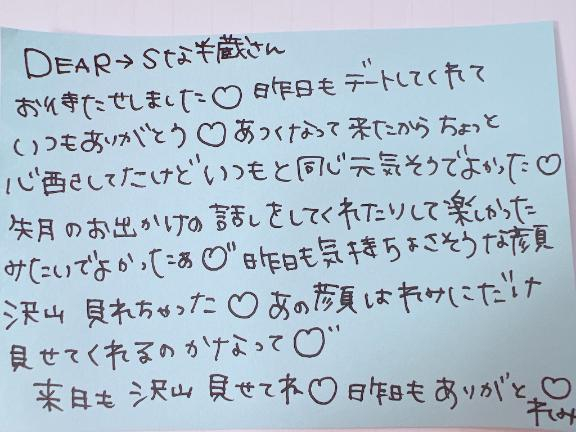 DEAR→Sな半蔵さん
お待たせしました♡ 昨日も デートしてくれて
いつもありがとう♡ あつくなって 来たから ちょっと
心配してたけど いつもと 同じ 元気そうでよかった♡
先月の お出かけの 話しをしてくれたりして 楽しかった
みたいで よかったぁ♡゛昨日も 気持ちよさそうな顔
沢山 見れちゃった♡ あの顔は れみにだけ
見せてくれるのかなって♡゛
来月も 沢山 見せてね♡ 昨日も ありがと♡
れみ